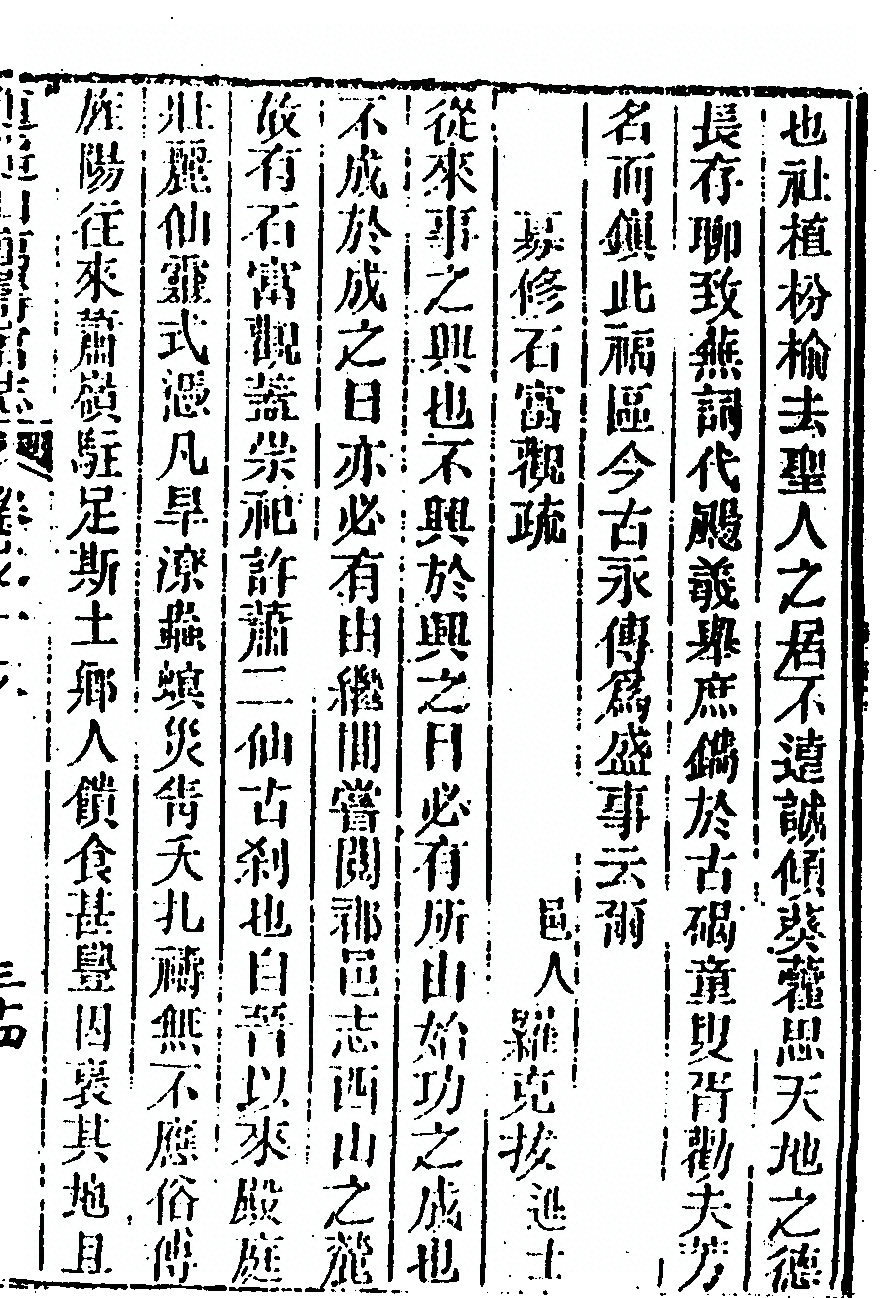 也社植枌榆去聖人之居不遠誠傾葵藿思天地之德
長存聊致蕪詞代颺義舉庶鐫於古碣童叟胥勸夫芳
名而鎮此福區今古永傳爲盛事云爾
募修石富觀疏
邑人羅克拔進士
從來事之興也不興於興之日必有所由始功之成也
不成於成之日亦必有由繼間嘗閱郡邑志西山之麓
故有石富觀蓋崇祀許蕭二仙古刹也自晉以來殿庭
壯麗仙靈式憑凡旱潦蟲螟災眚夭札禱無不應俗傳
旌陽往來蕭嶺駐足斯土鄉人饋食甚豐因裹其地且
三十四